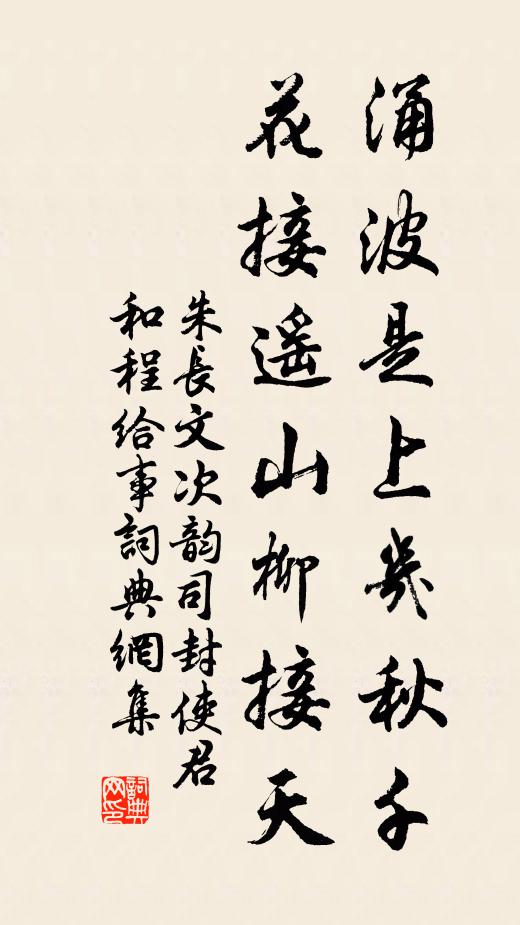 涌波是上幾秋千
花接遥山柳接天
朱長文次韵司封使君
和程給事詞典網集
詞典
网印